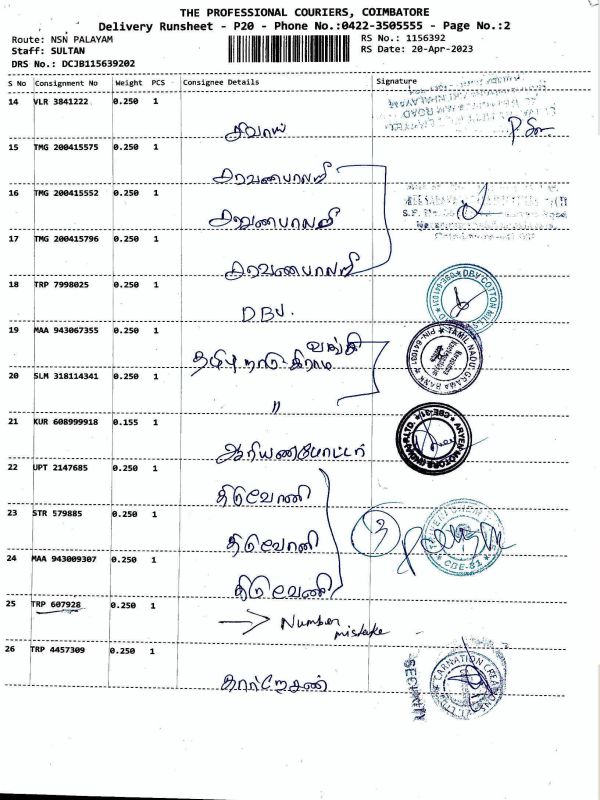 THE PROFESSIONAL COURIERS, COIMBATORE
Delivery Runsheet - P20 - Phone No.:0422-3505555 - Page No.:2
Route: NSN PALAYAM
RS No.: 1156392
Staff: SULTAN
RS Date: 20-Apr-2023
DRS No.: DCJB115639202
S No Consignment No Weight PCS Consignee Details Signature
14 VLR 3841222 0.250 1
சிவாய்
15 TMG 200415575 0.250 1
சரவணபாலாஜி
16 TMG 200415552 0.250 1
சரவணபாலாஜி
17 TMG 200415796 0.250 1
சரவணபாலாஜி
18 TRP 7998025 0.250 1
D.B.V.
DBV COTTON MILLS
19 MAA 943067355 0.250 1
வங்கி
தமிழ்நாடு கிராம
TAMIL NADU GRAMA BANK PIN-641031
20 SLM 318114341 0.250 1
"
21 KUR 608999918 0.155 1
ஆரியன்மோட்டர்
CBE-31
22 UPT 2147685 0.250 1
திருவேணி
23 STR 579885 0.250 1
திருவேணி
3
24 MAA 943009307 0.250 1
திருவேணி
25 TRP 607928 0.250 1
→ Number mistake
26 TRP 4457309 0.250 1
CARNATION CREATIONS PVT LTD
SECURITY